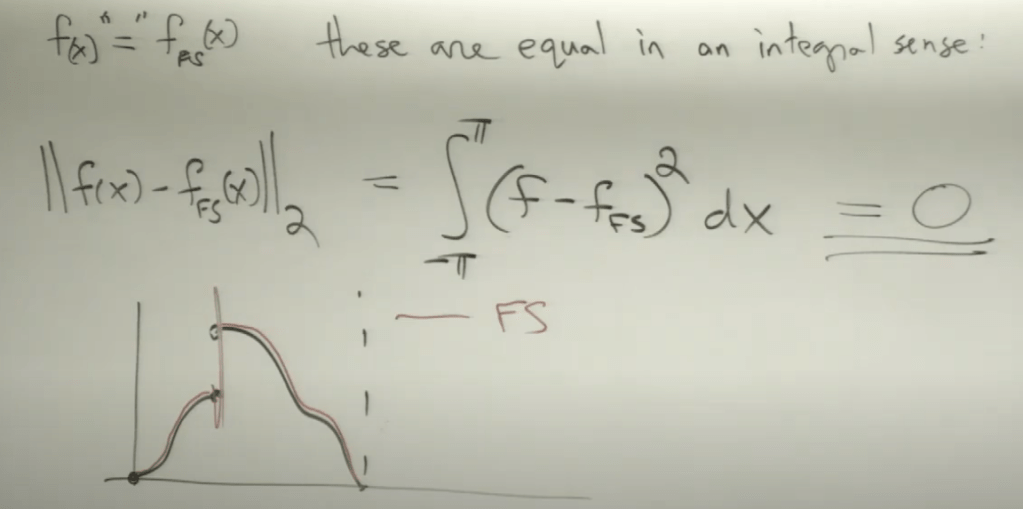 f(x) "=" f_FS(x) these are equal in an integral sense:
||f(x) - f_FS(x)||_2 = ∫_{-π}^{π} (f - f_FS)^2 dx = 0
FS